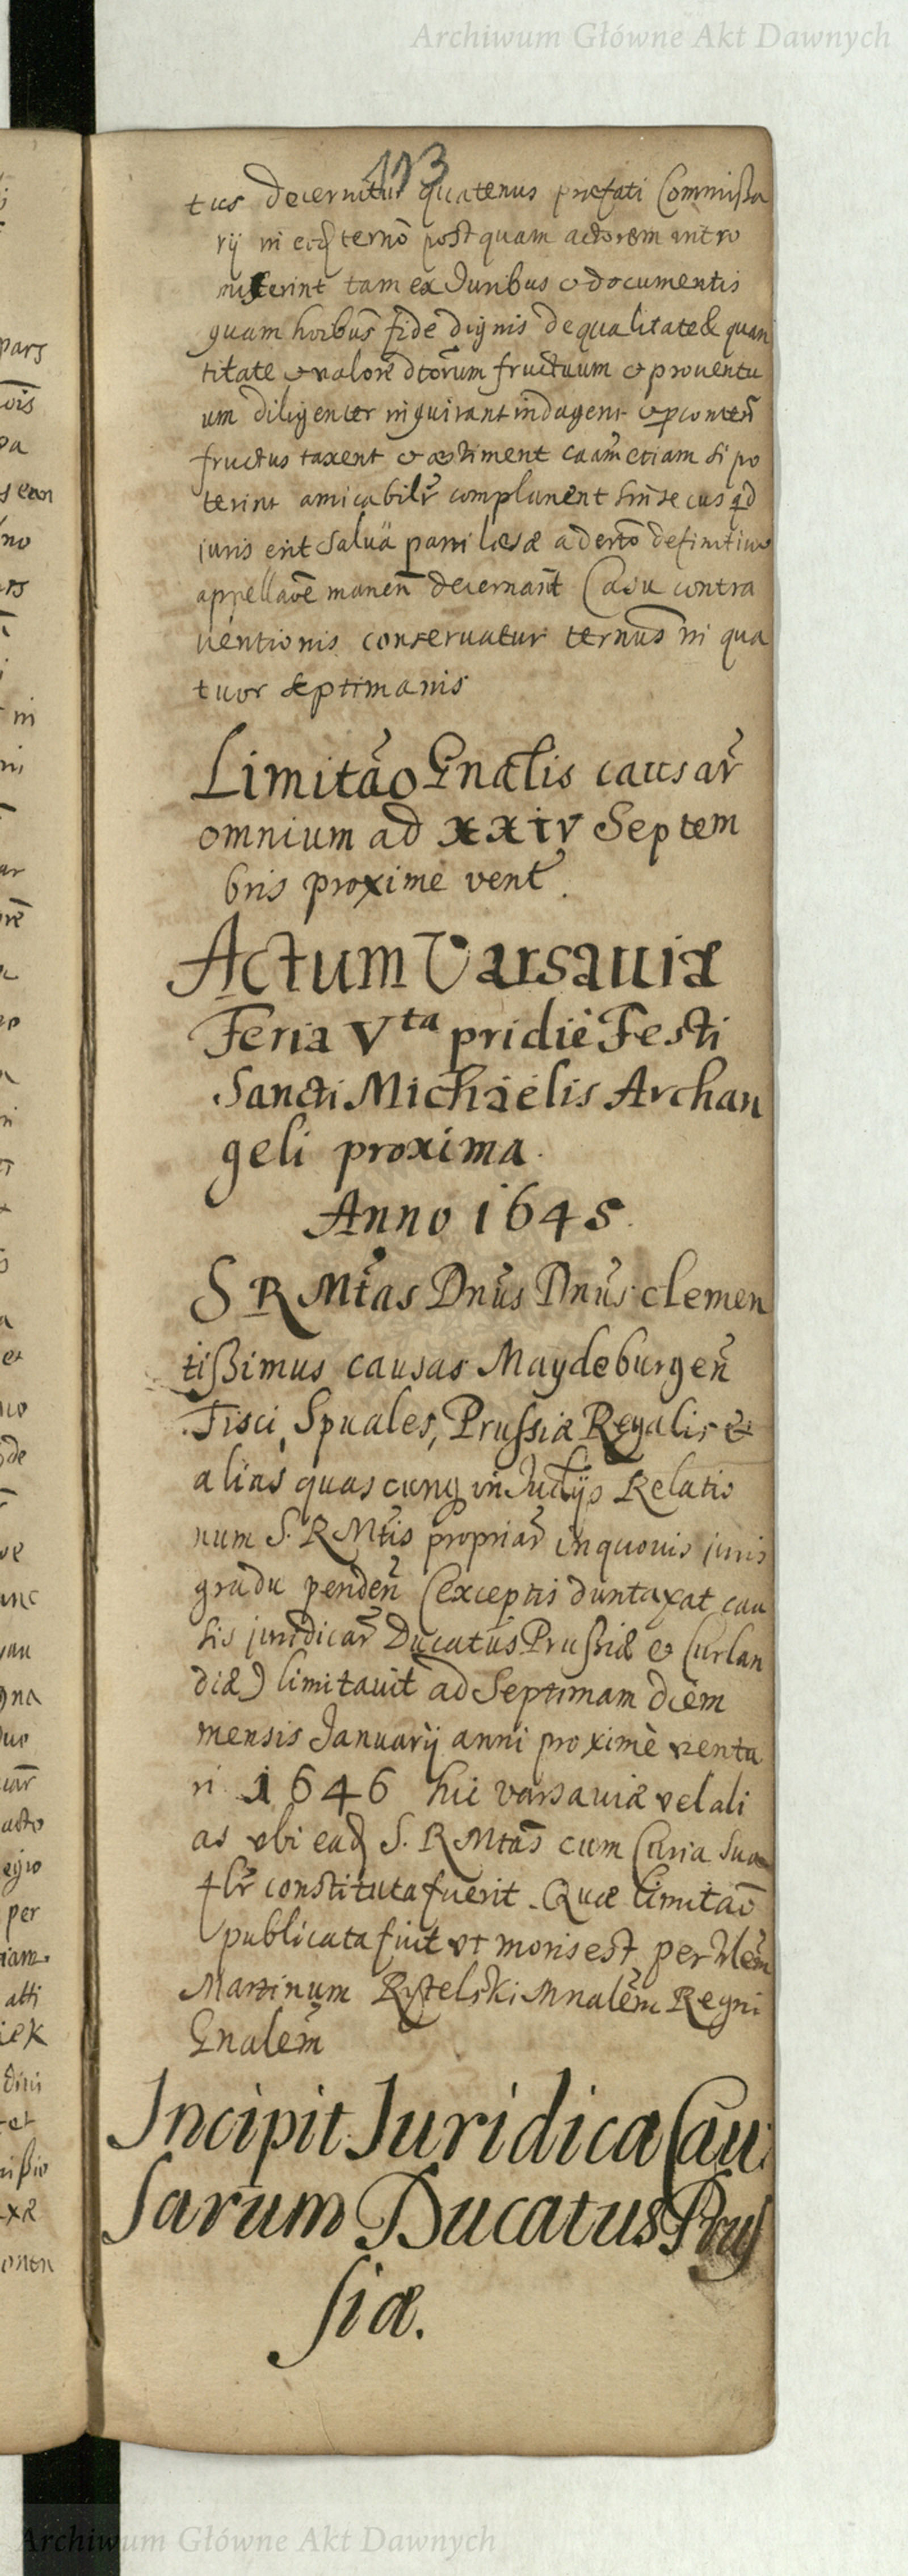 Archiwum Główne Akt Dawnych
413
tus decernitur quatenus præfati Commissa
rij in eoq terno postquam actorem intro
miserint tam ex Juribus et documentis
quam hoibus fide dignis de qualitate & quan
titate et valore dtorum fructuum et prouentu
um diligenter inquirant indagent et
fructus taxent et æstiment caam etiam si po
terint amicabilr complanent sin secus qd
juris erit salua parti læsæ a derto definitiuo
appellaoe manen decernant Casu contra
uentionis conseruatur ternus in qua
tuor septimanis
Limitao Gnalis causar
omnium ad xxiv Septem
bris proxime vent.
Actum Varsauiæ
Feria Vta pridie Festi
Sancti Michaelis Archan
geli proxima.
Anno 1645.
S R Mtas Dnus Dnus clemen
tissimus causas Maydeburgen
Fisci, Spuales, Prussiæ Regalis &
alias quascunq in Judijs Relatio
num S. R Mtis propriar in quouis juris
gradu penden (exceptis duntaxat cau
sis juridicar Ducatus Prussiæ et Curlan
diæ) limitauit ad Septimam diem
mensis Januarij anni proxime ventu
ri 1646 hic varsauiæ vel ali
as vbi ead S. R Mtas cum Curia sua
flr constituta fuerit. Quæ limitao
publicata fuit vt moris est per Mlem
Martinum Rytelski Mnalem Regni
Gnalem
Incipit Juridica Cau
sarum Ducatus Prus
siæ.
Archiwum Główne Akt Dawnych